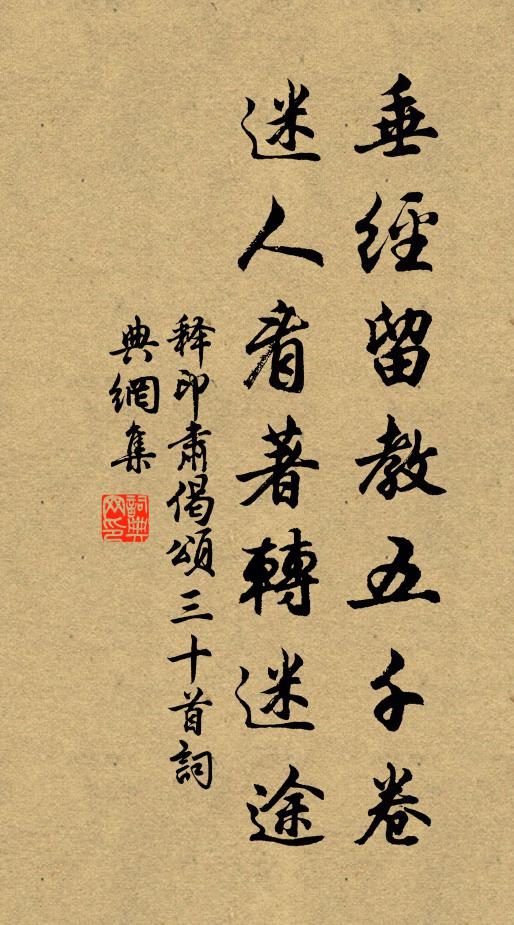 垂經留教五千卷
迷人看著轉迷途
释印肅偈頌三十首詞
典網集
詞典网印